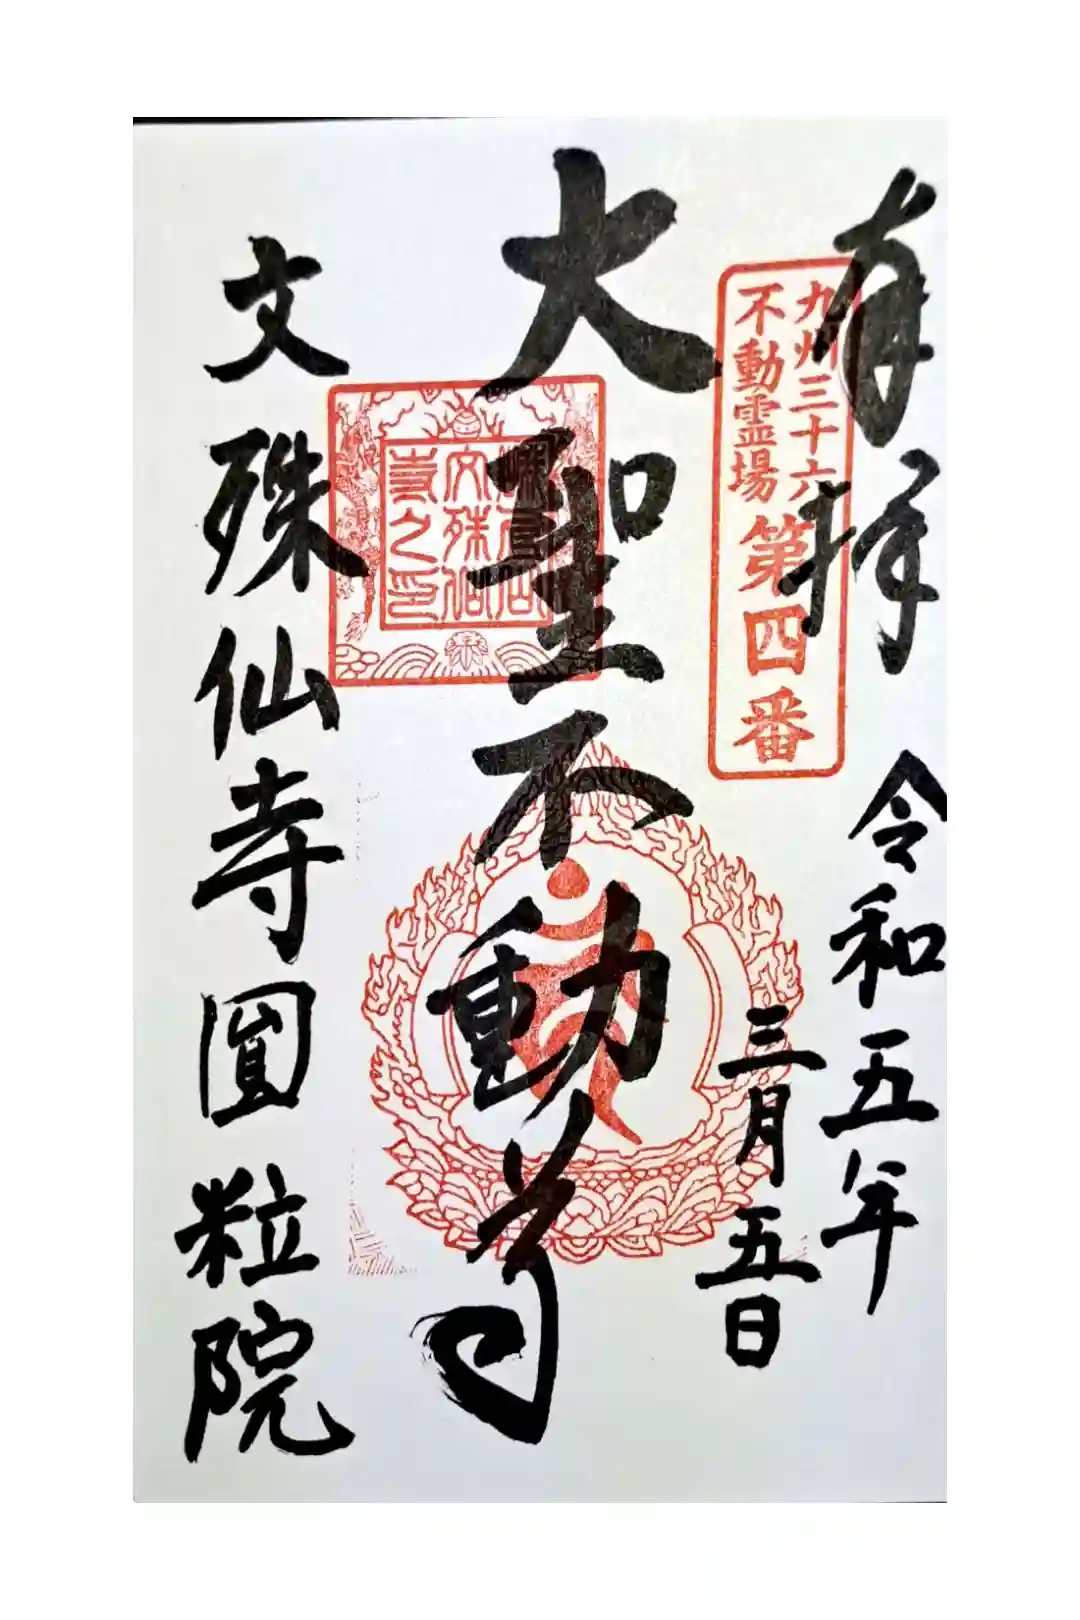 奉拝
令和五年
三月五日
九州三十六
不動霊場
第四番
大聖不動尊
文殊仙
寺之印
文殊仙寺圓粒院